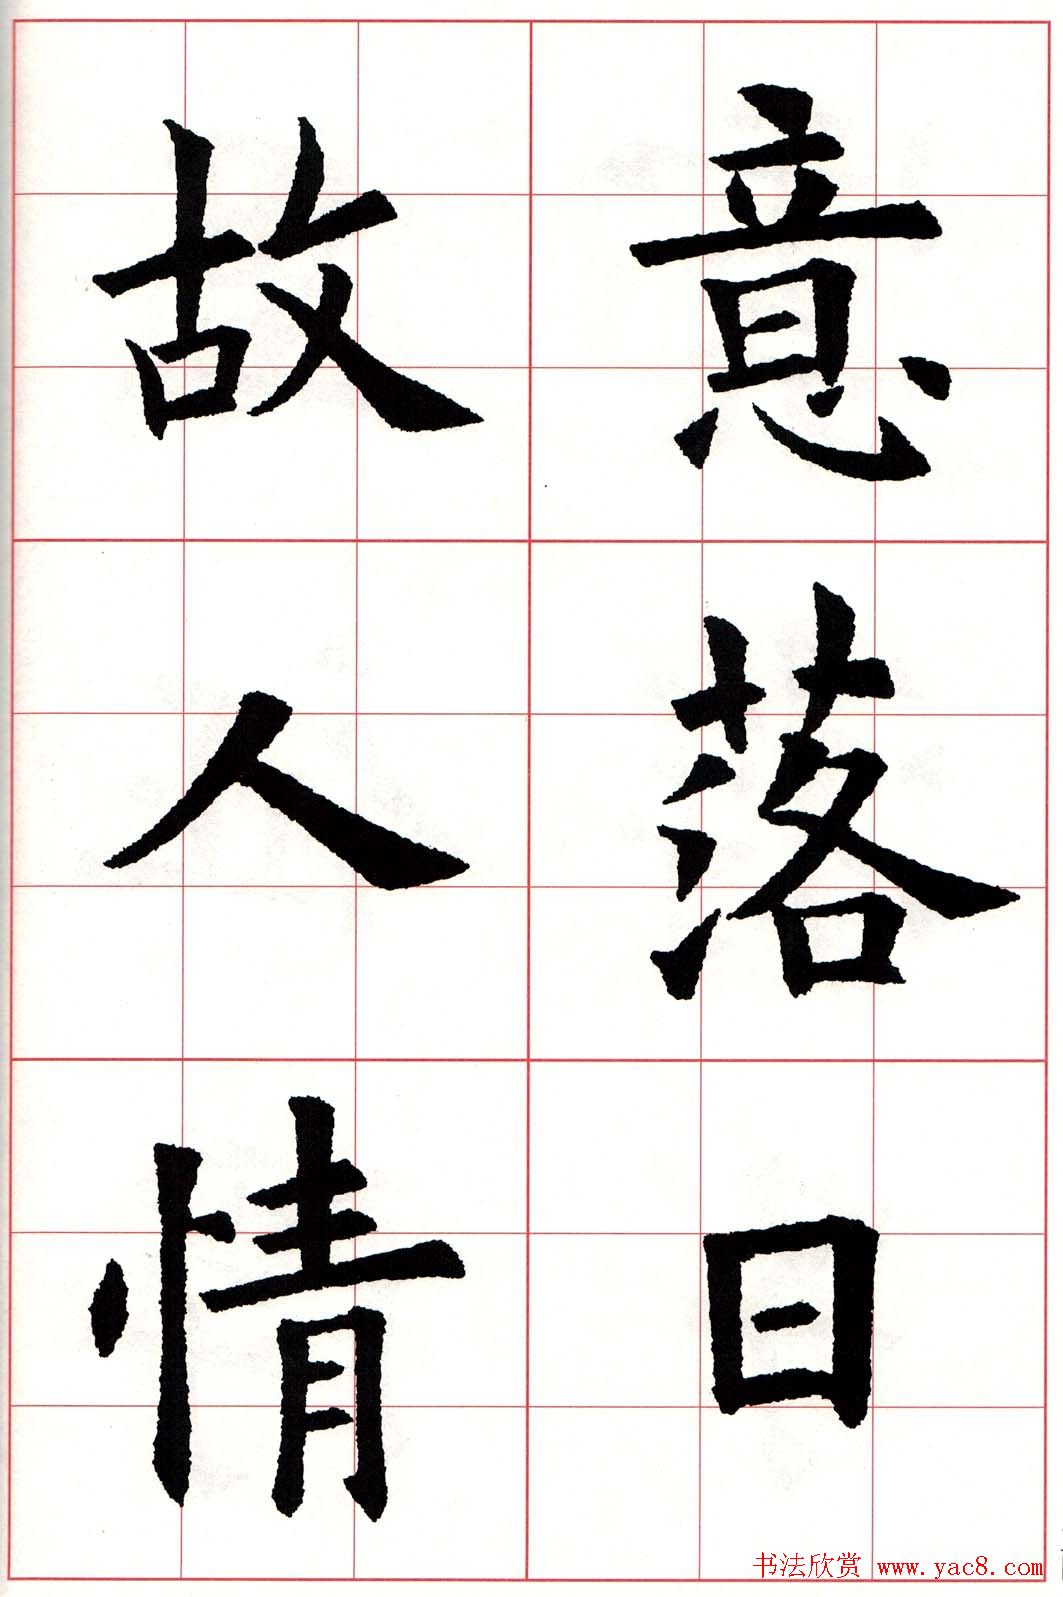 意落日
故人情
书法欣赏 www.yac8.com